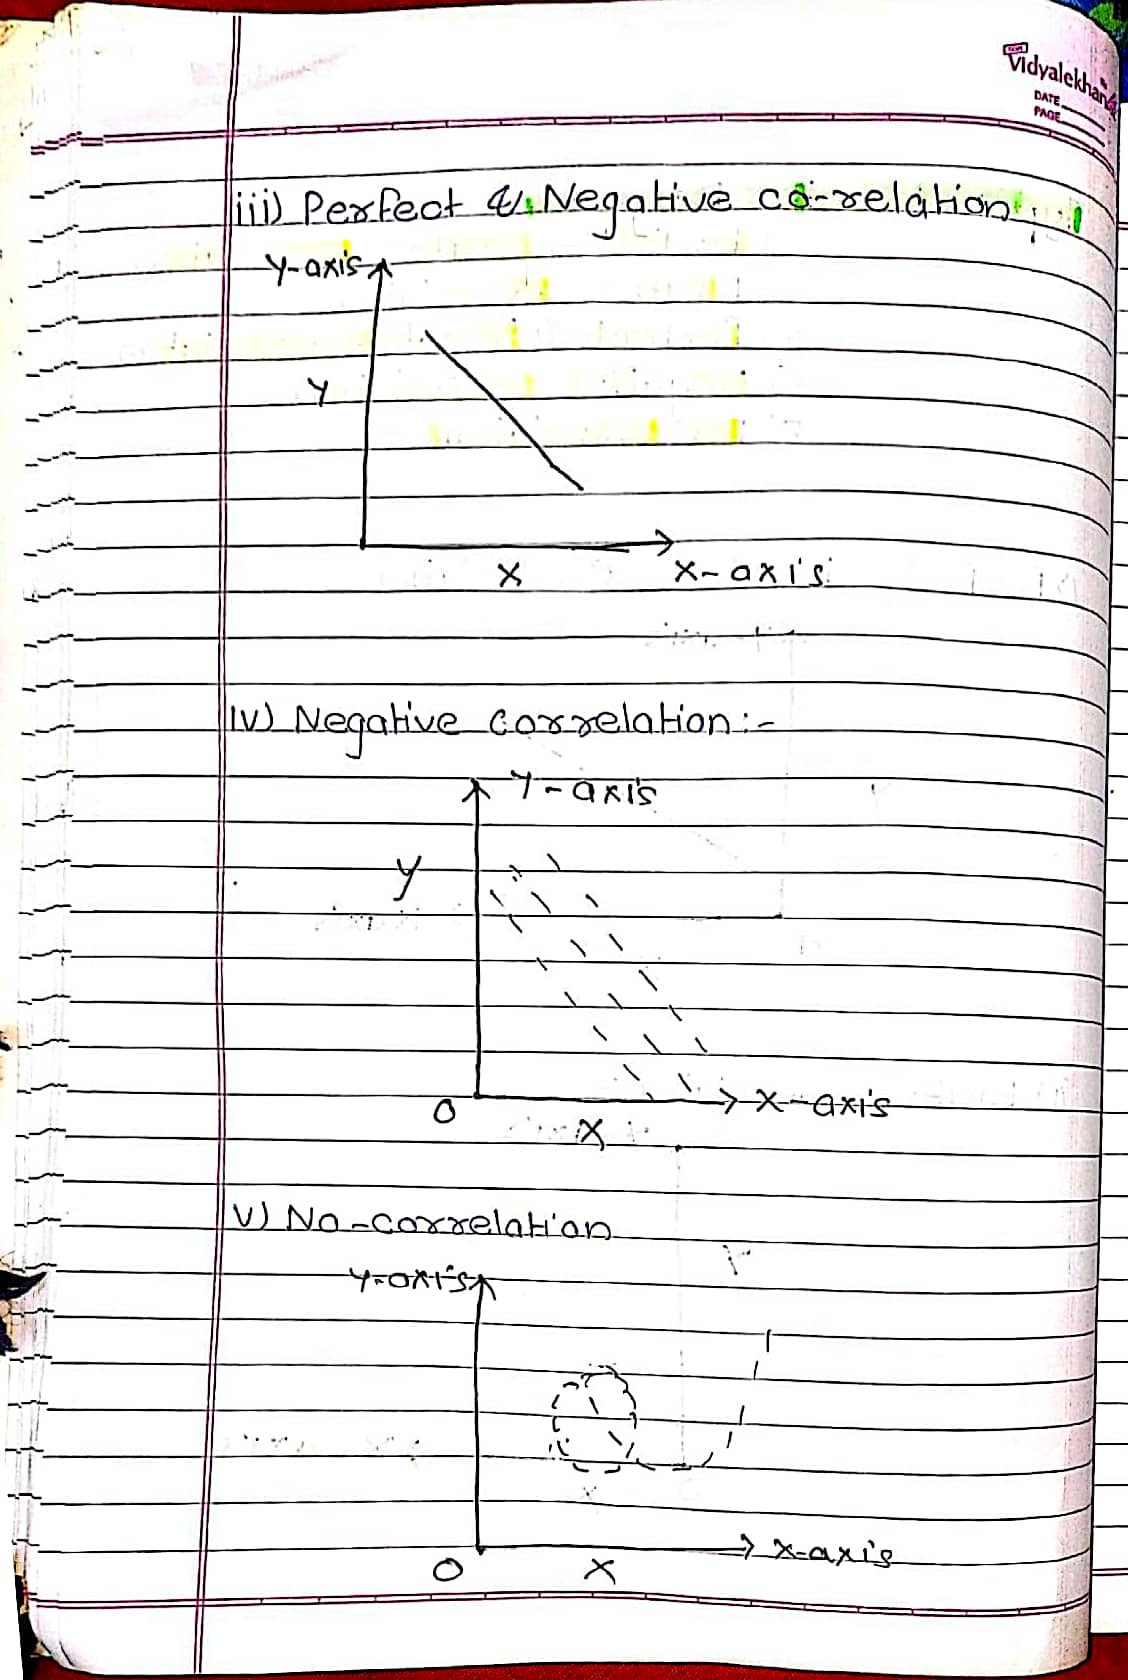 Vidyalekhan
DATE
PAGE
iii) Perfect & Negative co-relation
y-axis
y
x
x-axis
iv) Negative correlation :-
y-axis
y
x-axis
O
x
v) No-correlation
y-axis
x-axis
O
x